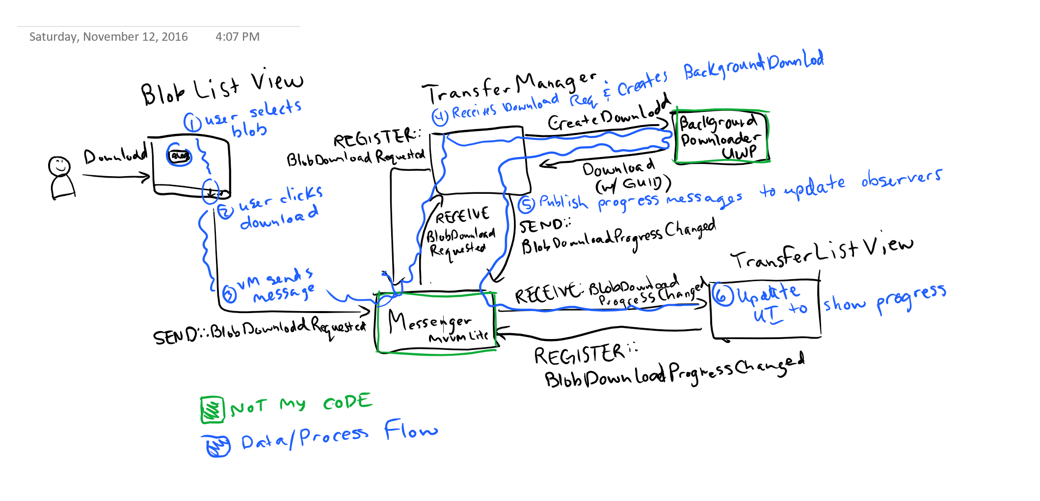 Saturday, November 12, 2016 4:07 PM
Blob List View
① user selects
blob
Download
② user clicks
download
③ VM sends
message
SEND::BlobDownloadRequested
TransferManager
④ Receives Download Req & Creates BackgroundDownlod
REGISTER::
BlobDownloadRequested
CreateDownload
Background
Downloader
UWP
Download
(w/ GUID)
⑤ Publish progress messages to update observers
RECEIVE
BlobDownload
Requested
SEND::
BlobDownloadProgressChanged
TransferListView
RECEIVE:BlobDownload
ProgressChanged
⑥ Update
UI to show progress
Messenger
MVVMLite
REGISTER::
BlobDownloadProgressChanged
NOT MY CODE
Data/Process Flow